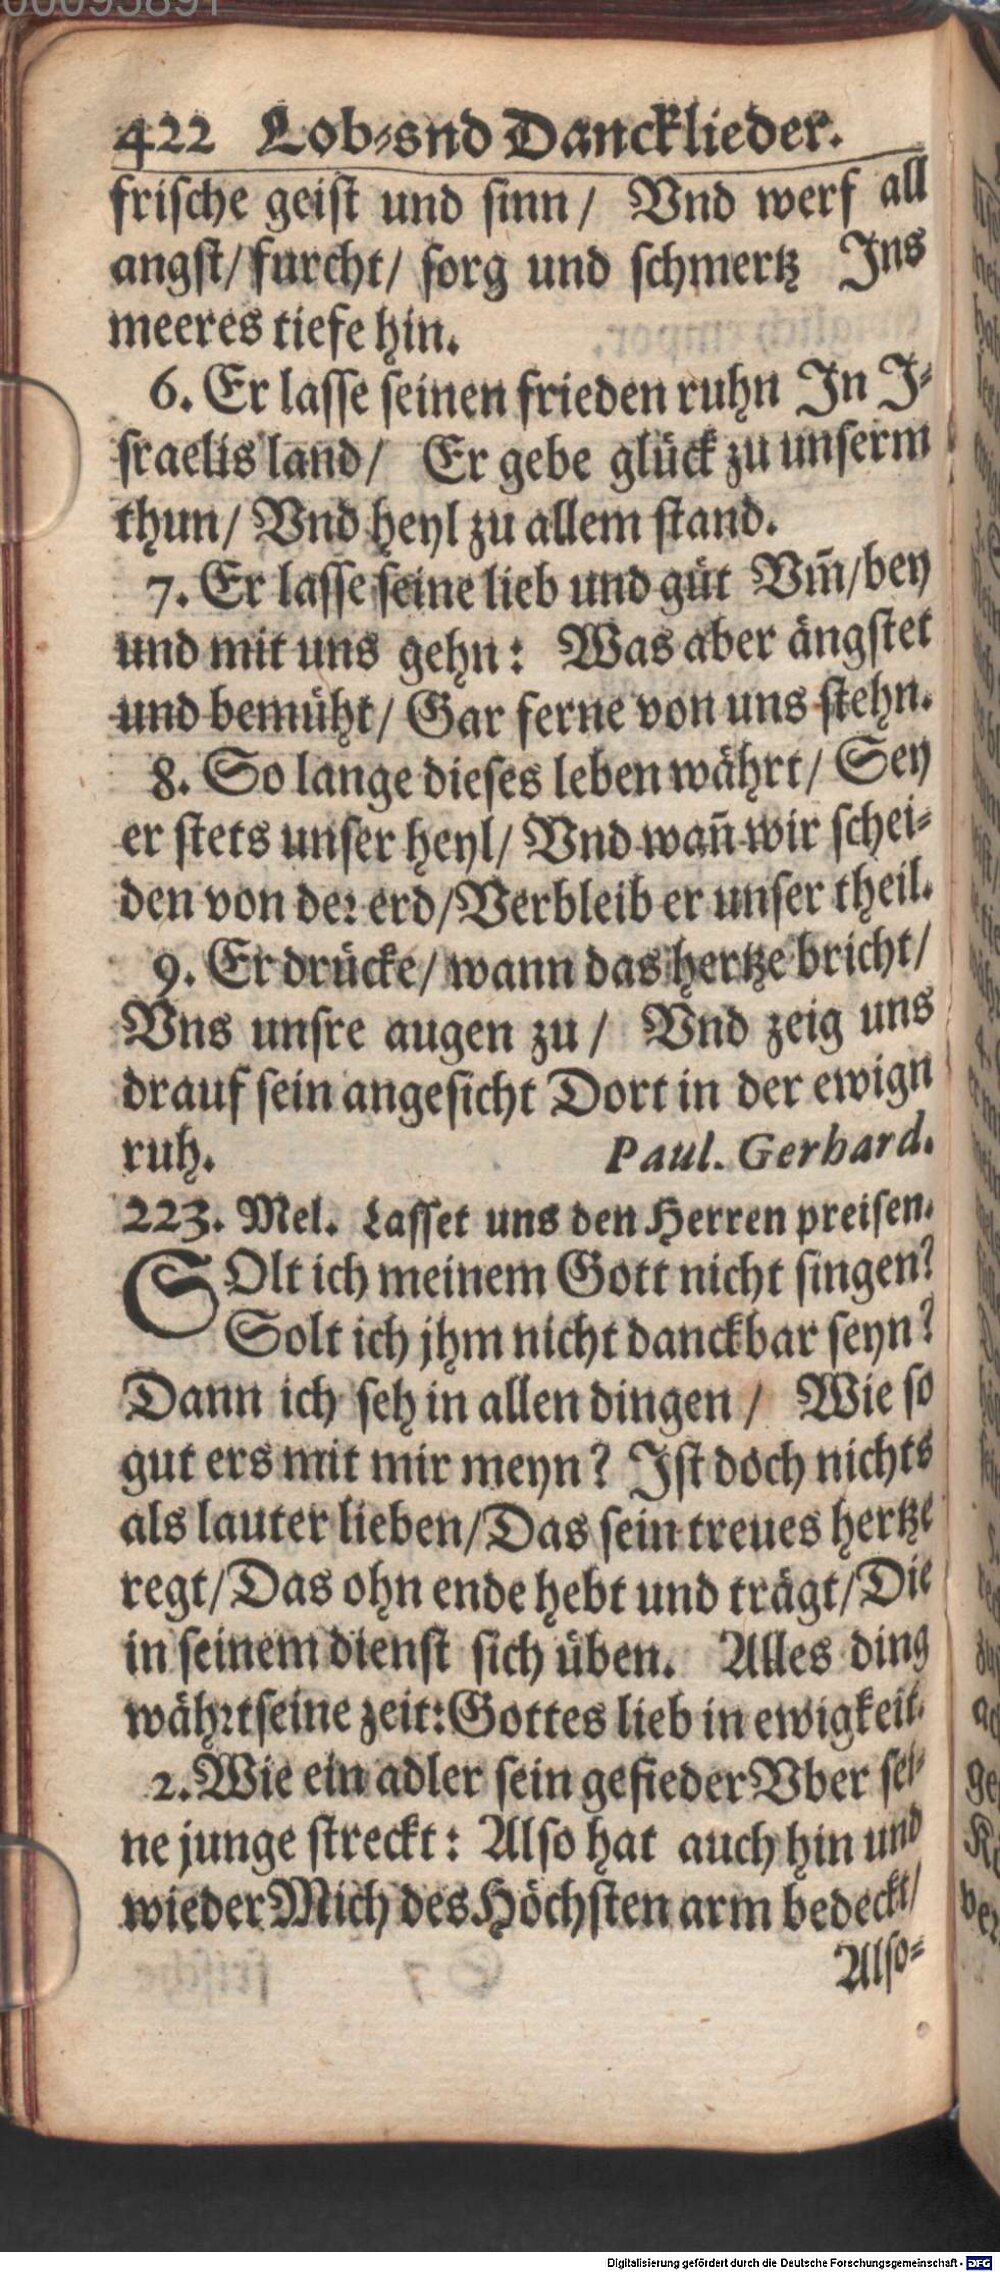 00095891
422 Lob-snd Dancklieder.
frische geist und sinn/ Vnd werf all
angst/ furcht/ sorg und schmertz Ins
meeres tiefe hin.
6. Er lasse seinen frieden ruhn In J-
sraelis land/ Er gebe glück zu unserm
thun/ Vnd heyl zu allem stand.
7. Er lasse seine lieb und güt Vm̃/bey
und mit uns gehn: Was aber ängstet
und bemüht/ Gar ferne von uns stehn.
8. So lange dieses leben währt/ Sey
er stets unser heyl/ Vnd wañ wir schei-
den von der erd/Verbleib er unser theil.
9. Er drücke/ wann das hertze bricht/
Vns unsre augen zu/ Vnd zeig uns
drauf sein angesicht Dort in der ewign
ruh. Paul. Gerhard.
223. Mel. Lasset uns den Herren preisen.
SOlt ich meinem Gott nicht singen?
Solt ich jhm nicht danckbar seyn?
Dann ich seh in allen dingen/ Wie so
gut ers mit mir meyn? Ist doch nichts
als lauter lieben/Das sein treues hertze
regt/Das ohn ende hebt und trägt/Die
in seinem dienst sich üben. Alles ding
währt seine zeit: Gottes lieb in ewigkeit.
2. Wie ein adler sein gefieder Vber sei-
ne junge streckt: Also hat auch hin und
wieder Mich des Höchsten arm bedeckt/
Also-
Digitalisierung gefördert durch die Deutsche Forschungsgemeinschaft - DFG